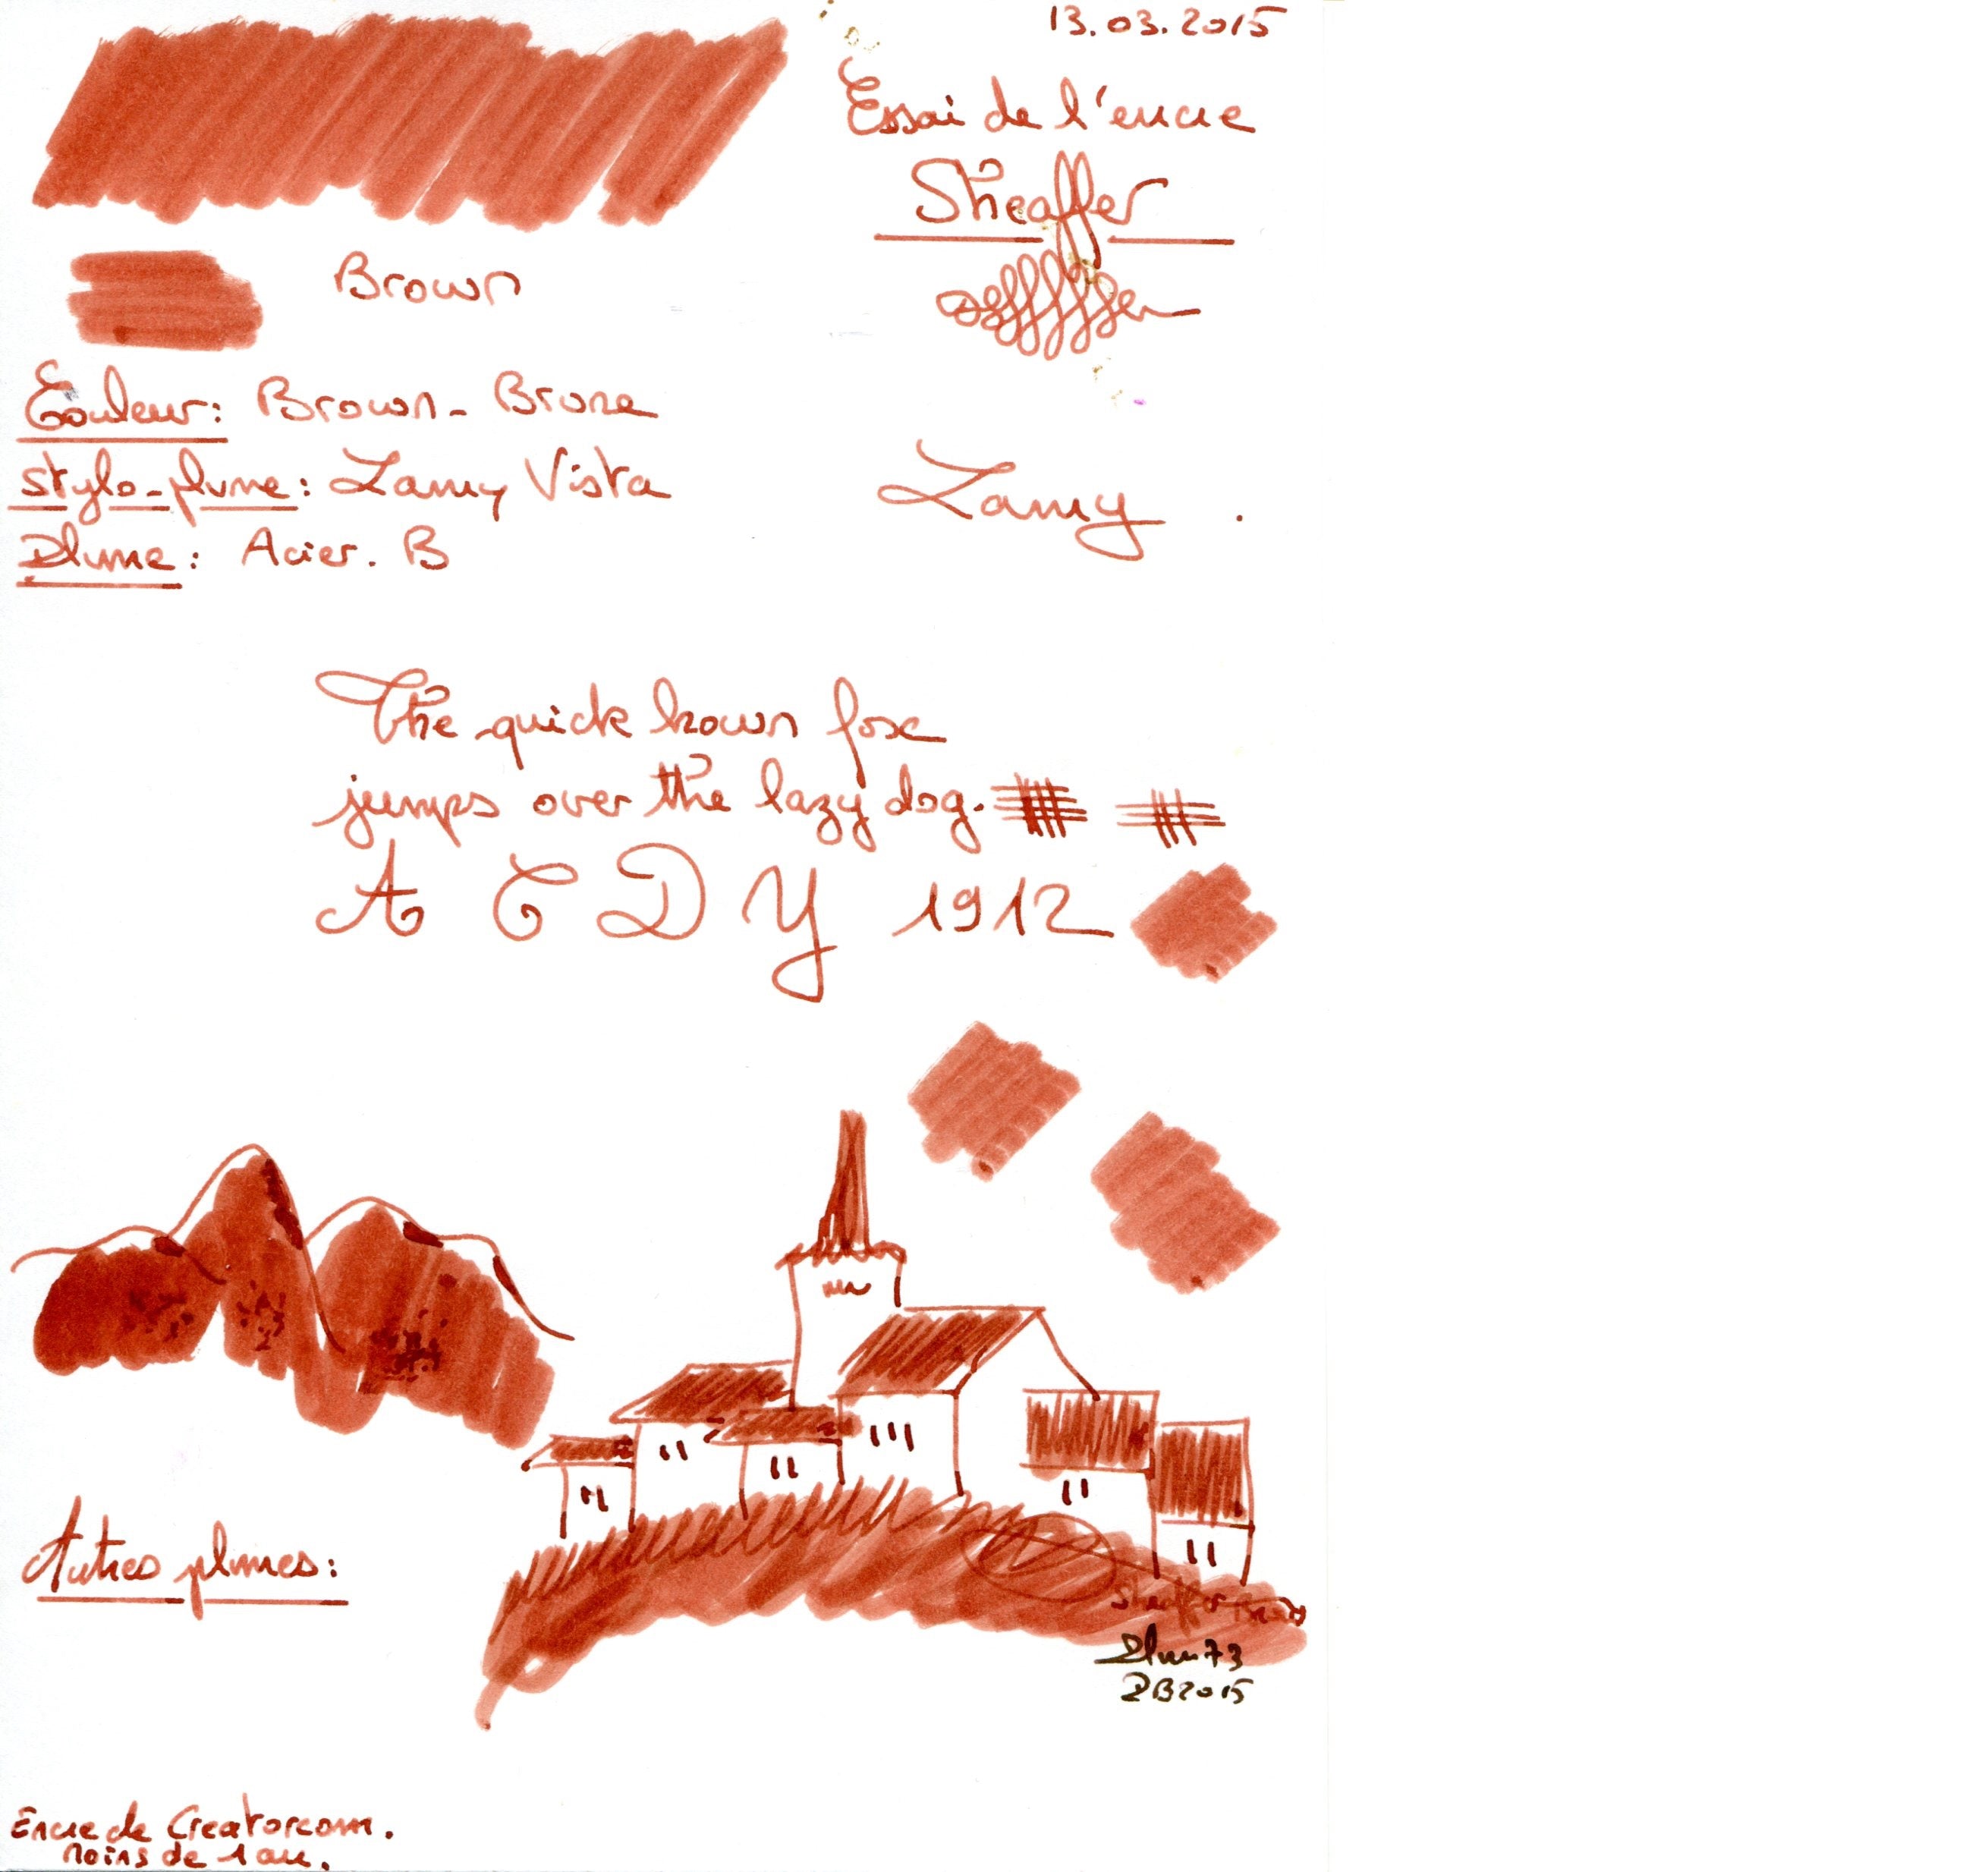 13.03.2015
Essai de l'encre
Sheaffer
Brown
Couleur: Brown - Brune
Stylo-plume: Lamy Vista
Lamy.
Plume: Acier. B
The quick brown fox
jumps over the lazy dog.
A C D Y 1912
Autres plumes:
Sheaffer Brown
Plum73
PB2015
Encre de Creatorcom.
Moins de 1 an.